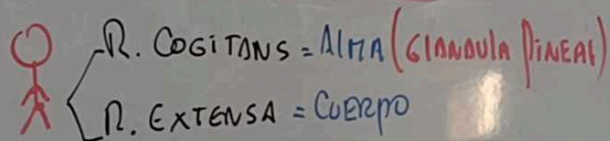 R. COGITANS = AlMA (GlANDULA PINEAl)
R. EXTENSA = CUERPO